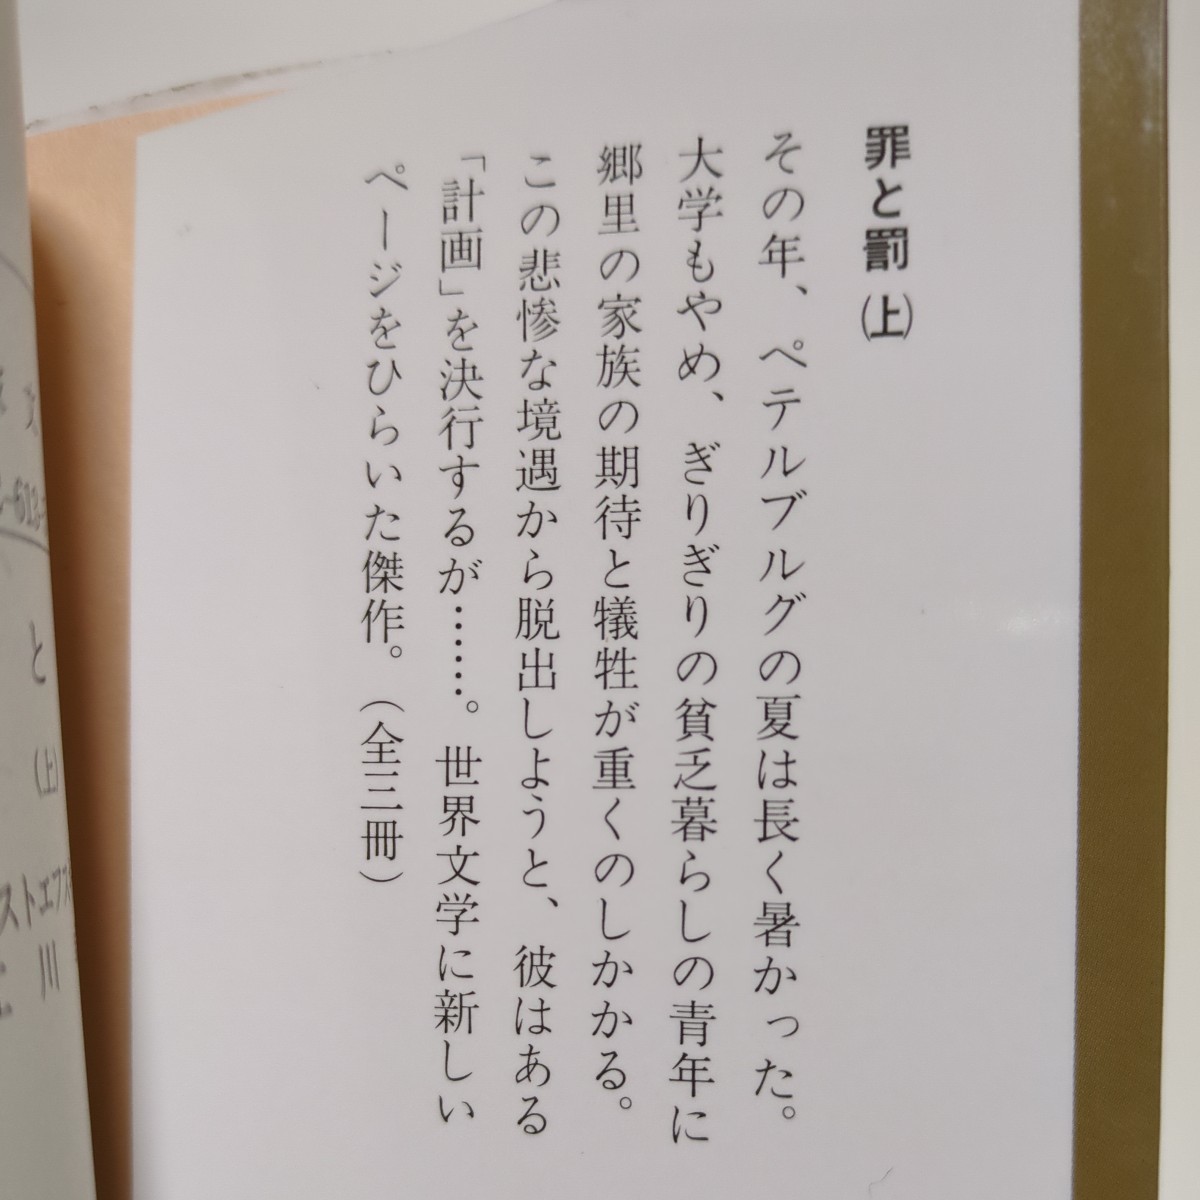 罪と罰(上)
その年、ペテルブルグの夏は長く暑かった。
大学もやめ、ぎりぎりの貧乏暮らしの青年に
郷里の家族の期待と犠牲が重くのしかかる。
この悲惨な境遇から脱出しようと、彼はある
「計画」を決行するが……。世界文学に新しい
ページをひらいた傑作。(全三冊)
と
(上)
ストエフス
川